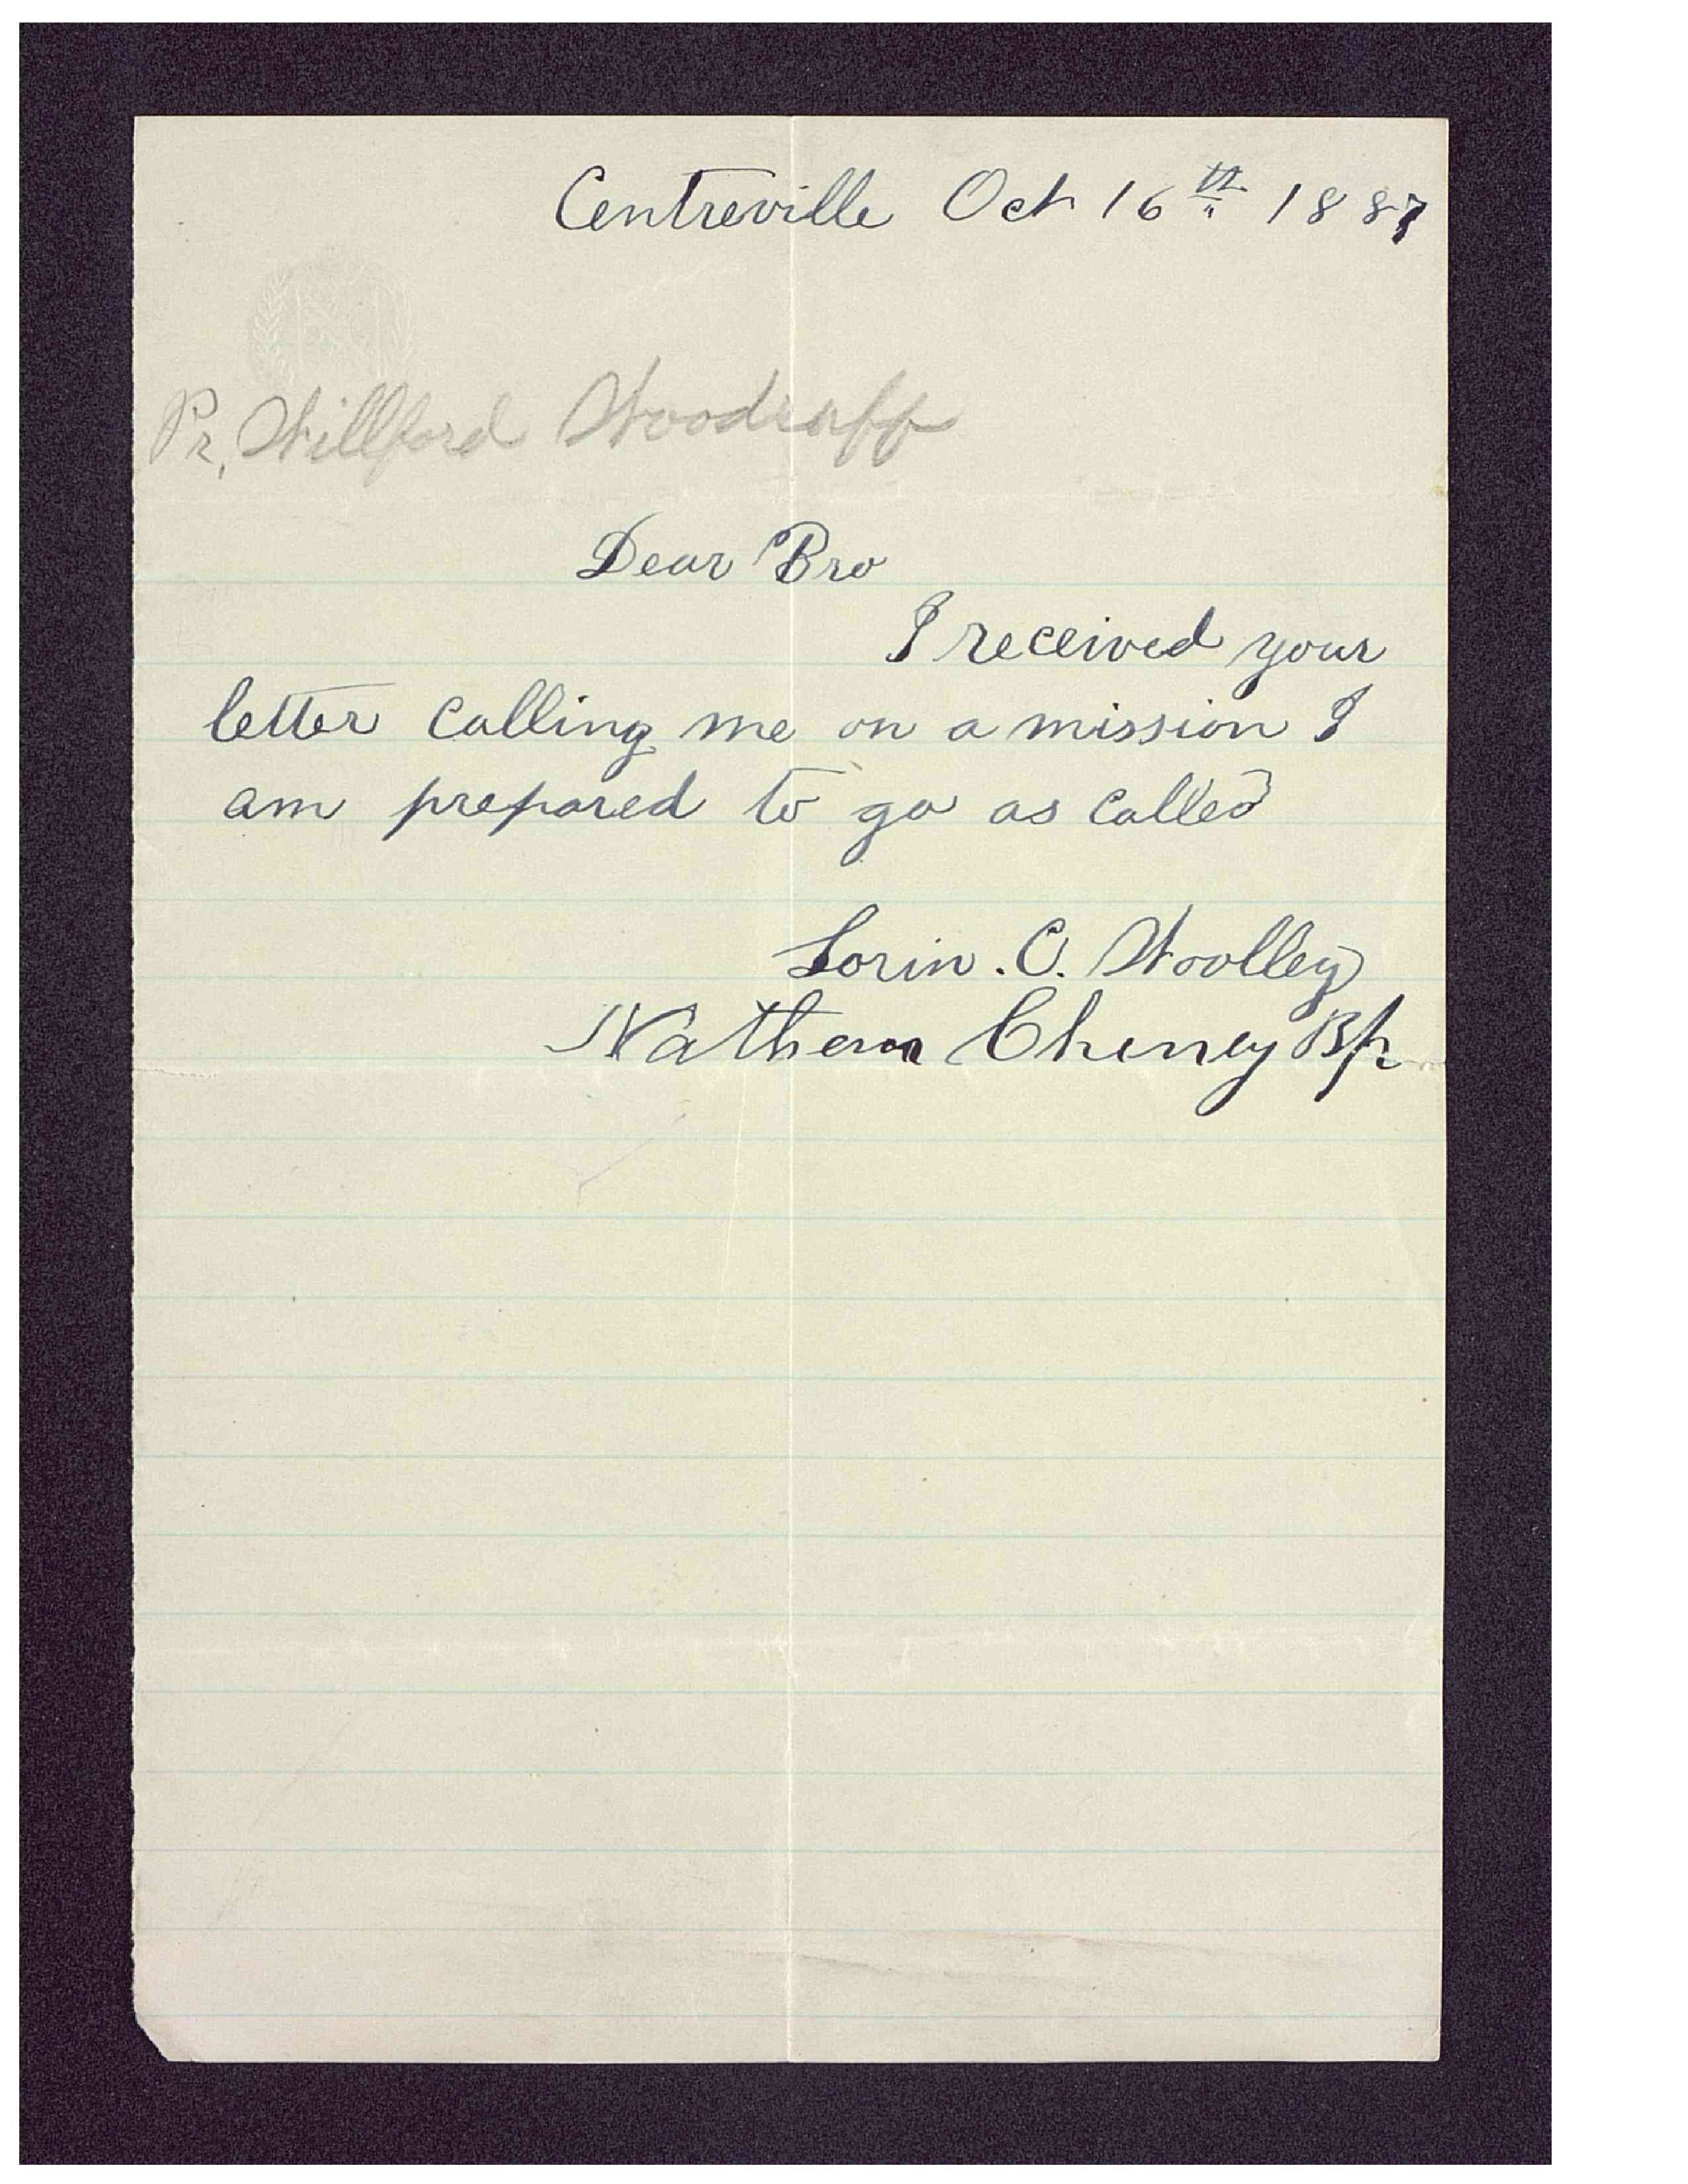 Centreville Oct 16th 1887
Pr, Willford Woodruff
Dear Bro
I received your
letter calling me on a mission I
am prepared to go as called
Lorin. C. Woolley
Nathan Cheney Bp